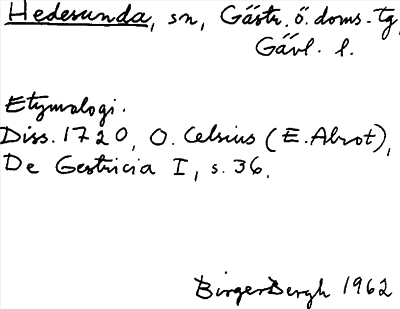 Hedesunda, sn, Gästr. ö. doms.-tg,
Gävl. l.
Etymologi.
Diss. 1720, O. Celsius (E. Alrot),
De Gestricia I, s. 36.
Birger Bergh 1962